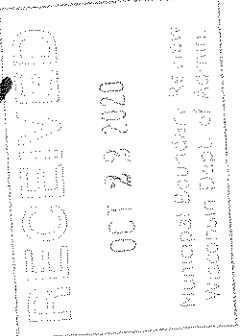 RECEIVED
OCT 29 2020
Municipal Boundary Review
Wisconsin Dept. of Admin.